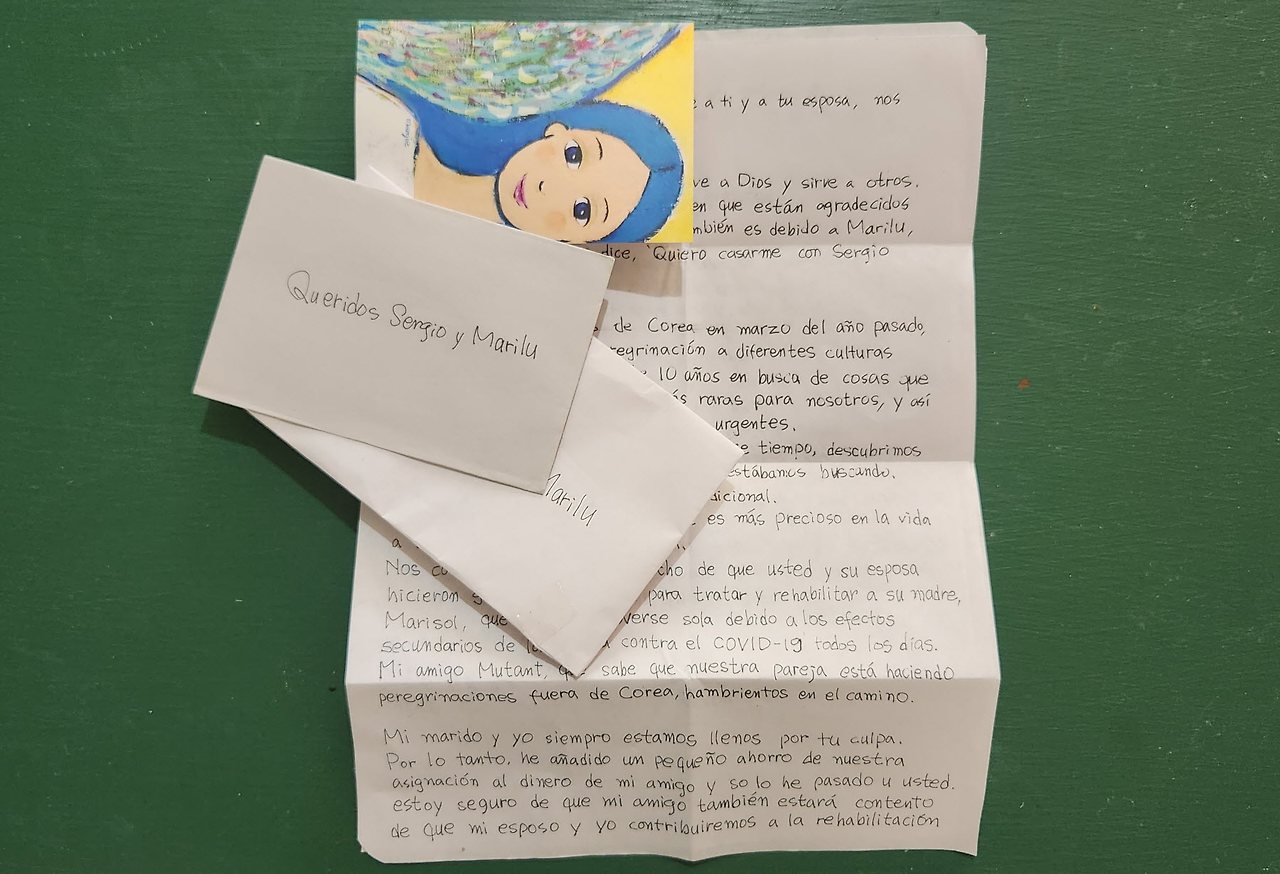 a ti y a tu esposa, nos
a Dios y sirve a otros.
que están agradecidos
es debido a Marilu,
dice, 'Quiero casarme con Sergio
Queridos Sergio y Marilu
de Corea en marzo del año pasado,
a diferentes culturas
10 años en busca de cosas que
raras para nosotros, y así
urgentes.
tiempo, descubrimos
estábamos buscando.
Marilu
es más precioso en la vida
a
Nos de que usted y su esposa
hicieron para tratar y rehabilitar a su madre,
Marisol, que sola debido a los efectos
secundarios de contra el COVID-19 todos los días.
Mi amigo Mutant, sabe que nuestra pareja está haciendo
peregrinaciones fuera de Corea, hambrientos en el camino.
Mi marido y yo siempro estamos llenos por tu culpa.
Por lo tanto, he añadido un pequeño ahorro de nuestra
asignación al dinero de mi amigo y so lo he pasado u usted.
estoy seguro de que mi amigo también estará contento
de que mi esposo y yo contribuiremos a la rehabilitación